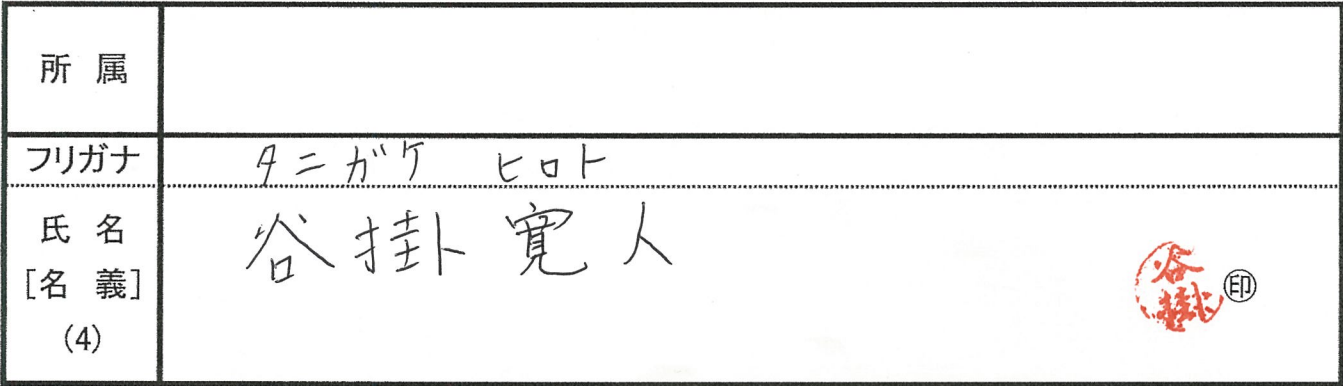 所 属
フリガナ
タニガケ ヒロト
氏 名
[名 義]
(4)
谷掛寛人
谷掛
㊞